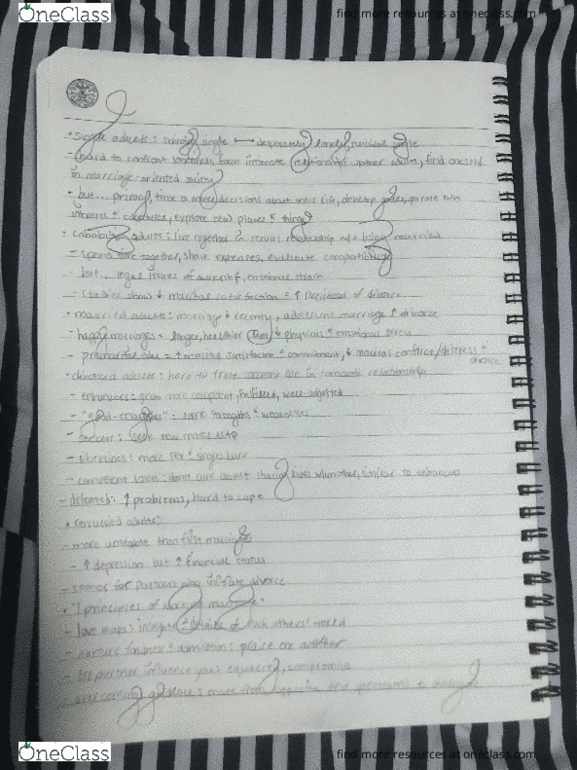 OneClass
find more resources at oneclass.com
• single adults: single desperately lonely, suicidal single
- hard to confront loneliness, form intimate relationships w/other adults, find
in marriage-oriented society
- but... time to make decisions about life, develop goals, pursue own
interests + explore new places + things
• cohabiting adults: live together in sexual relationship w/o being married
- spend time together, share expenses, evaluate compatibility
- but... legal issues of ownership, emotional strain
- studies show ↓ marital satisfaction + ↑ of divorce
• married adults: marriage ↓ recently, adolescent marriage ↑ divorce
- happy marriages = longer, healthier lives, ↓ physical + emotional stress
- premarital edu = ↑ marital satisfaction + commitment, ↓ marital conflict/distress +
divorce
• divorced adults: hard to trust else in romantic relationship
- enhancers: grow more competent, fulfilled, well-adjusted
- "good-enoughs": some strengths + weaknesses
- seekers: seek new mates ASAP
- libertines: more sex + singles bars
- competent loners: don't care about sharing lives w/another, similar to enhancers
- defeated: ↑ problems, hard to cope
• remarried adults:
- more unstable than first marriages
- ↑ depression but ↑ financial status
- sooner for partners who initiate divorce
• 7 principles of working marriage:
- love maps: insights + details of each others' world
- nurture fondness + admiration: praise one another
- let partner influence you: equality, compromise
OneClass
find more resources at oneclass.com